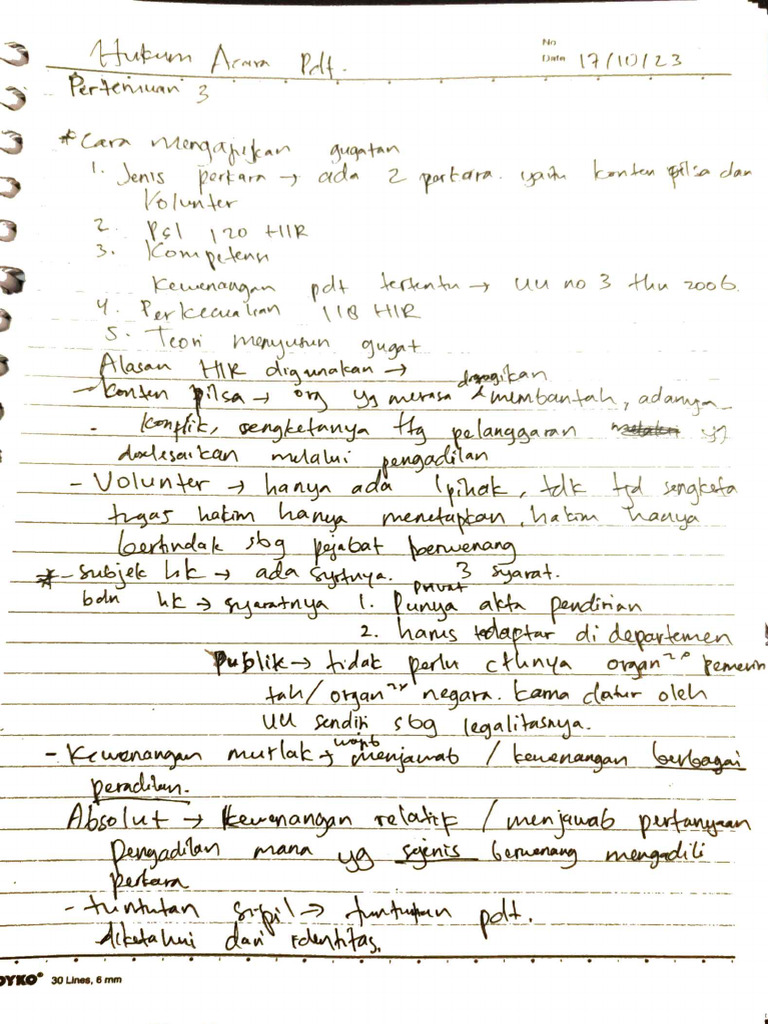 Hukum Acara Pdt.
No
Date 17/10/23
Pertemuan 3
* Cara mengajukan gugatan
1. Jenis perkara → ada 2 perkara. yaitu konten pilsa dan
Volunter
2. Psl 120 HIR
3. Kompetensi
kewenangan pdt tertentu → UU no 3 thn 2006.
4. Perkecualian 118 HIR
5. Teori menyusun gugat
Alasan HIR digunakan →
- konten pilsa → org yg merasa dirugikan & membantah, adanya
- konflik, sengketanya ttg pelanggaran yg
diselesaikan melalui pengadilan
- Volunter → hanya ada 1 pihak, tdk tjd sengketa
tugas hakim hanya menetapkan, hakim hanya
bertindak sbg pejabat berwenang
* - Subjek hk → ada syrtnya. 3 syarat.
bdn hk → syaratnya privat 1. Punya akta pendirian
2. harus terdaptar di departemen
Publik → tidak perlu cthnya organ"⁰ pemerin
tah/organ" negara. karna diatur oleh
UU sendiri sbg legalitasnya.
- Kewenangan mutlak → menjawab / kewenangan berbagai
peradilan.
Absolut → kewenangan relatif / menjawab pertanyaan
pengadilan mana yg sejenis berwenang mengadili
perkara
- tuntutan sipil → tuntutan pdt.
diketahui dari identitas.
30 Lines, 6 mm